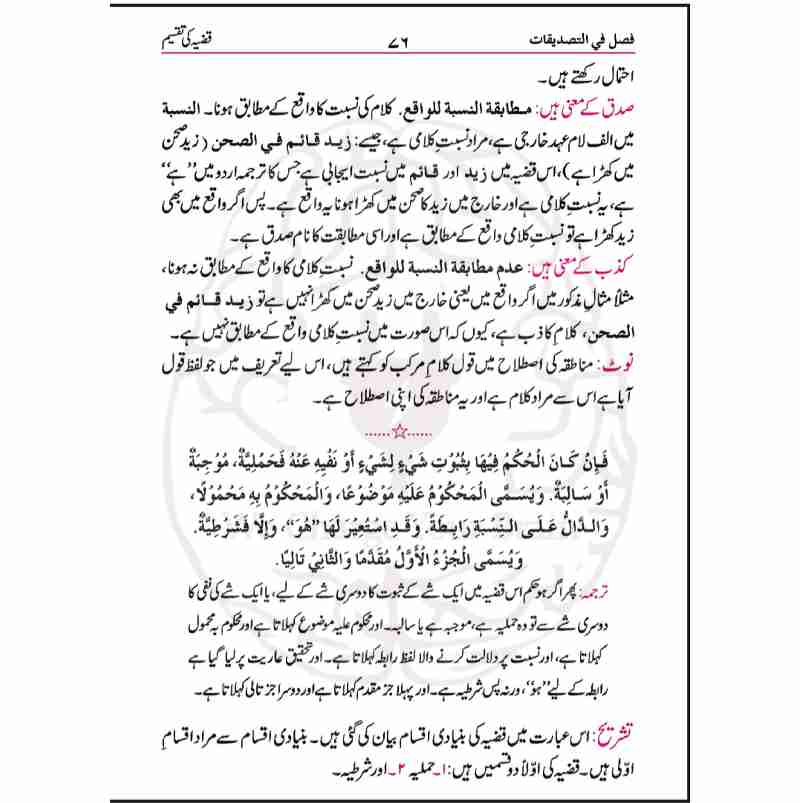 فصل في التصديقات ۷۶ قضیہ کی تقسیم
احتمال رکھتے ہیں۔
صدق کے معنی ہیں: مـطابقة النسبة للواقع. کلام کی نسبت کا واقع کے مطابق ہونا۔ النسبة
میں الف لام عہد خارجی ہے، مراد نسبتِ کلامی ہے، جیسے: زيـد قـائم فـي الصحن (زید صحن
میں کھڑا ہے)، اس قضیہ میں زيد اور قائم میں نسبت ایجابی ہے جس کا ترجمہ اردو میں ’’ہے‘‘
ہے، یہ نسبتِ کلامی ہے اور خارج میں زید کا صحن میں کھڑا ہونا یہ واقع ہے۔ پس اگر واقع میں بھی
زید کھڑا ہے تو نسبتِ کلامی واقع کے مطابق ہے اور اسی مطابقت کا نام صدق ہے۔
کذب کے معنی ہیں: عدم مطابقة النسبة للواقع. نسبتِ کلامی کا واقع کے مطابق نہ ہونا،
مثلاً مثالِ مذکور میں اگر واقع میں یعنی خارج میں زید صحن میں کھڑا نہیں ہے تو زيـد قـائـم في
الصحن، کلامِ کاذب ہے، کیوں کہ اس صورت میں نسبتِ کلامی واقع کے مطابق نہیں ہے۔
نوٹ: مناطقہ کی اصطلاح میں قول کلامِ مرکب کو کہتے ہیں، اس لیے تعریف میں جو لفظ قول
آیا ہے اس سے مراد کلام ہے اور یہ مناطقہ کی اپنی اصطلاح ہے۔
......☆......
فَإِنْ كَـانَ الْحُكْمُ فِيْهَا بِثُبُوْتِ شَيْءٍ لِشَيْءٍ أَوْ نَفْيِهِ عَنْهُ فَحَمْلِيَّةٌ، مُوْجِبَةٌ
أَوْ سَـالِبَةٌ. وَيُسَـمَّى الْمَحْكُوْمُ عَلَيْهِ مَوْضُوْعًا، وَالْمَحْكُوْمُ بِهِ مَحْمُوْلًا،
وَالـدَّالُّ عَلَـى النِّسْبَةِ رَابِـطَةً. وَقَـدِ اسْتُعِيْرَ لَهَا ”هُوَ“، وَإِلَّا فَشَرْطِيَّةٌ.
وَيُسَمَّى الْجُزْءُ الْأَوَّلُ مُقَدَّمًا وَالثَّانِيْ تَالِيًا.
ترجمہ: پھر اگر ہو حکم اس قضیہ میں ایک شے کے ثبوت کا دوسری شے کے لیے، یا ایک شے کی نفی کا
دوسری شے سے تو وہ حملیہ ہے، موجبہ ہے یا سالبہ۔ اور محکوم علیہ موضوع کہلاتا ہے اور محکوم بہ محمول
کہلاتا ہے، اور نسبت پر دلالت کرنے والا لفظ رابطہ کہلاتا ہے۔ اور تحقیق عاریت پر لیا گیا ہے
رابطہ کے لیے ’’ہو‘‘، ورنہ پس شرطیہ ہے۔ اور پہلا جز مقدم کہلاتا ہے اور دوسرا جز تالی کہلاتا ہے۔
تشریح: اس عبارت میں قضیہ کی بنیادی اقسام بیان کی گئی ہیں۔ بنیادی اقسام سے مراد اقسامِ
اوّلی ہیں۔ قضیہ کی اوّلاً دو قسمیں ہیں: ۱۔ حملیہ ۲۔ اور شرطیہ۔